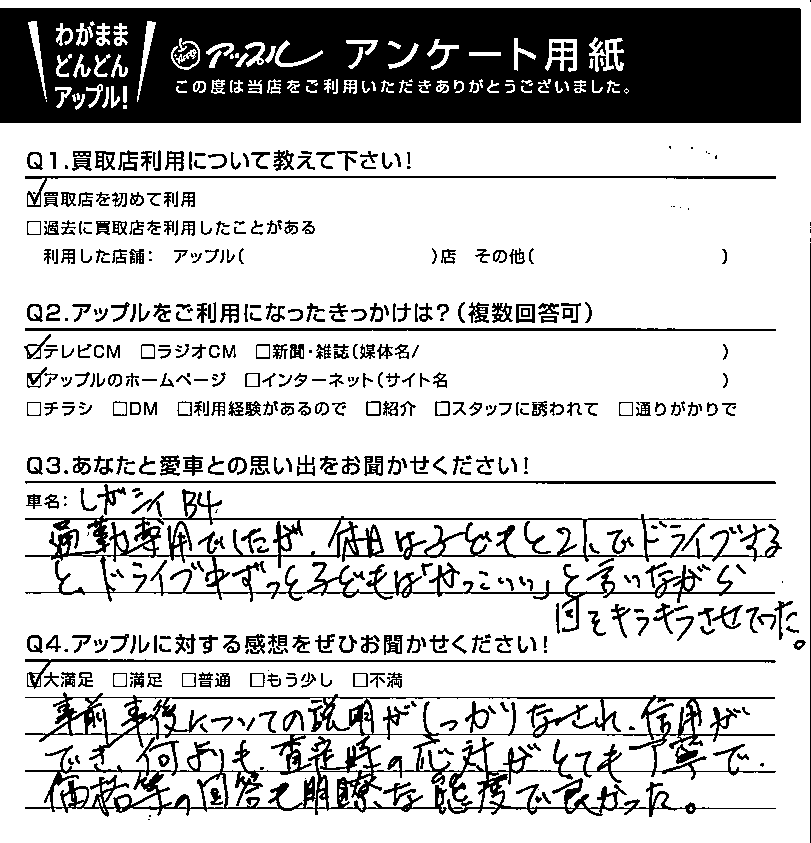 わがまま
どんどん
アップル!
アップル アンケート用紙
この度は当店をご利用いただきありがとうございました。
Q1.買取店利用について教えて下さい!
☑買取店を初めて利用
□過去に買取店を利用したことがある
利用した店舗: アップル( )店 その他( )
Q2.アップルをご利用になったきっかけは?(複数回答可)
☑テレビCM □ラジオCM □新聞・雑誌(媒体名/ )
☑アップルのホームページ □インターネット(サイト名 )
□チラシ □DM □利用経験があるので □紹介 □スタッフに誘われて □通りがかりで
Q3.あなたと愛車との思い出をお聞かせください!
車名: レガシィ B4
通勤専用でしたが、休日は子どもと2人でドライブする
と、ドライブ中ずっと子どもは「かっこいい」と言いながら
目をキラキラさせていた。
Q4.アップルに対する感想をぜひお聞かせください!
☑大満足 □満足 □普通 □もう少し □不満
事前事後についての説明がしっかりなされ、信用が
でき、何よりも、査定時の応対がとても丁寧で、
価格等の回答も明瞭な態度で良かった。